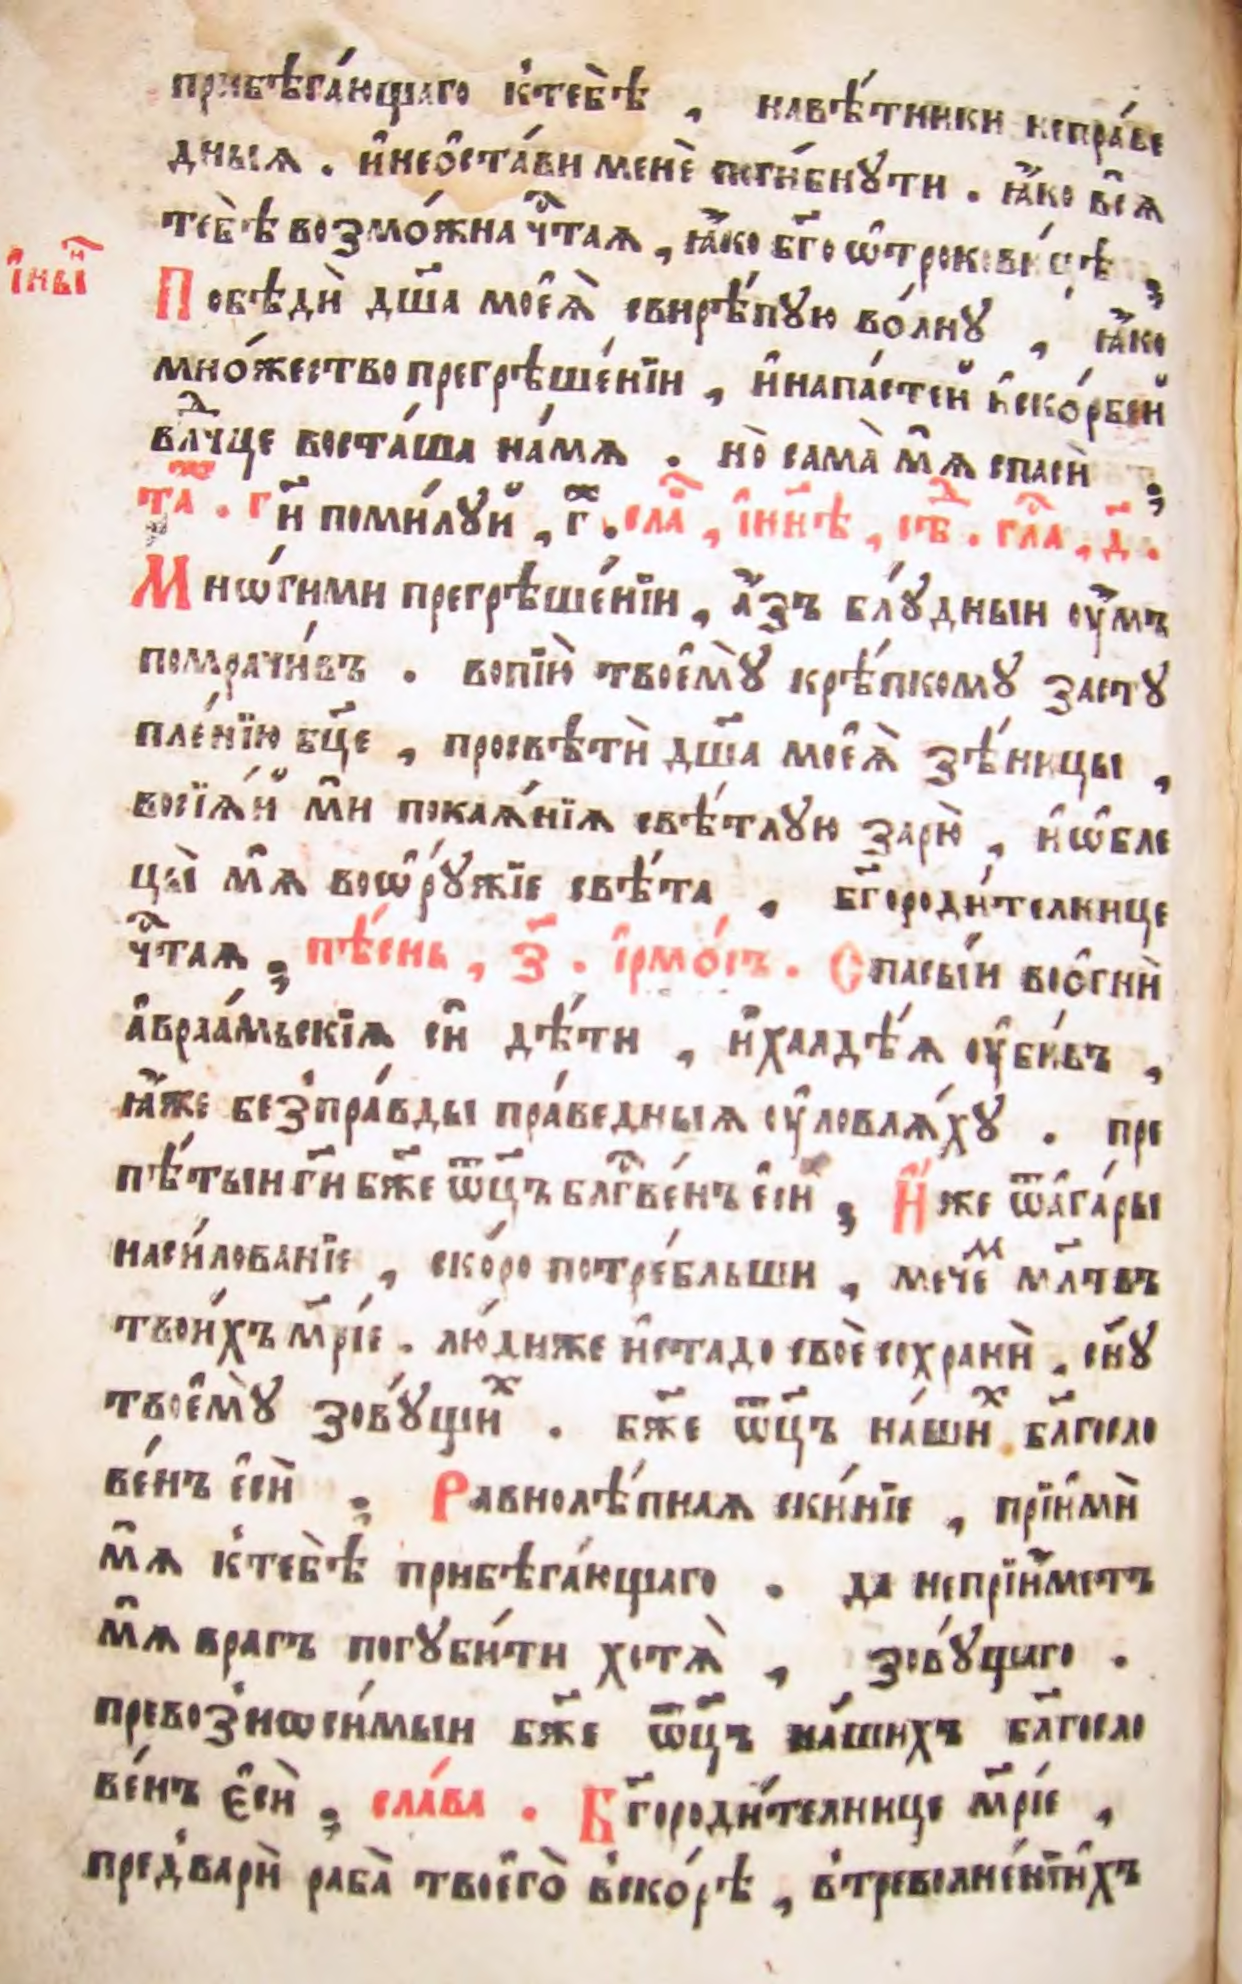 прибѣга́ющаго к̾тебѣ̀ , навѣ́тники непра́ве
дныѧ . и҆неѡ҆ста́ви менѐ поги́бнꙋти . ꙗ҆́ко всѧ̑
тебѣ̀ возмо́жна чⷭ҇таѧ , ꙗ҆́ко бг҃оѻтрокови́цѣ ,
і҆ны́й
Побѣдѝ дш҃а моеѧ̀ свирѣ́пꙋю во́лнꙋ , ꙗ҆́ко
мно́жество прегрѣше́нїи , и҆напа́стей и҆ско́рбей
влⷣчце воста́ша на́мѧ . но̀ сама̀ мѧ̑ спасѝ ;
та̑ . гⷭ҇и поми́лꙋй , г҃ . сла̑ , и҆нн҃ѣ , сѣⷣ . гла̑ , д҃ .
Мнѡ́гими прегрѣше́нїи , а҆́зъ блꙋ́дныи ᲂу҆́мъ
помрачи́въ . вопїю̀ твоемꙋ̀ крѣ́пкомꙋ застꙋ
пле́нїю бц҃е , просвѣтѝ дш҃а моеѧ̀ зѣ́ницы ,
возсїѧ́й мѝ покаѧ́нїѧ свѣ́тлꙋю зарю̀ , и҆ѡ҆бле
цы̀ мѧ̑ воѡ҆рꙋ́жїе свѣ́та , бг҃ороди́телнице
чⷭ҇таѧ , пѣ́снь , з҃ . і҆рмо́съ . Спасы́и воѻгнѝ
а҆враа́мьскїѧ сѝ дѣ́ти , и҆халдѣ́ѧ ᲂу҆би́въ ,
ꙗ҆́же без̾пра́вды пра́ведныѧ ᲂу҆ловлѧ́хꙋ . пре
пѣ́тыи гⷭ҇и бж҃е ѿц҃ъ блгⷭ҇ве́нъ є҆сѝ ; И҆́же ѿа҆га́ры
наси́лованїе , ско́ро потре́бльши , мечеⷨ мл҃твъ
твои́хъ мр҃і́е . лю́диже и҆стадо своѐ сохранѝ . сн҃ꙋ
твоемꙋ̀ зовꙋ́щиⷯ . бж҃е ѿц҃ъ на́шиⷯ блгⷭ҇осло
ве́нъ є҆сѝ ; Равнолѣ́пнаѧ ски́нїе , прїимѝ
мѧ̑ к̾тебѣ̀ прибѣга́ющаго . да непрїи́метъ
мѧ̑ врагъ погꙋби́ти хотѧ̀ , зовꙋ́щаго .
превоз̾носи́мыи бж҃е ѿц҃ъ на́шихъ блгⷭ҇осло
ве́нъ є҆сѝ ; сла́ва . Бг҃ороди́телнице мр҃і́е ,
пред̾варѝ раба̀ твоего̀ в̾ско́рѣ , в̾треволне́нїихъ